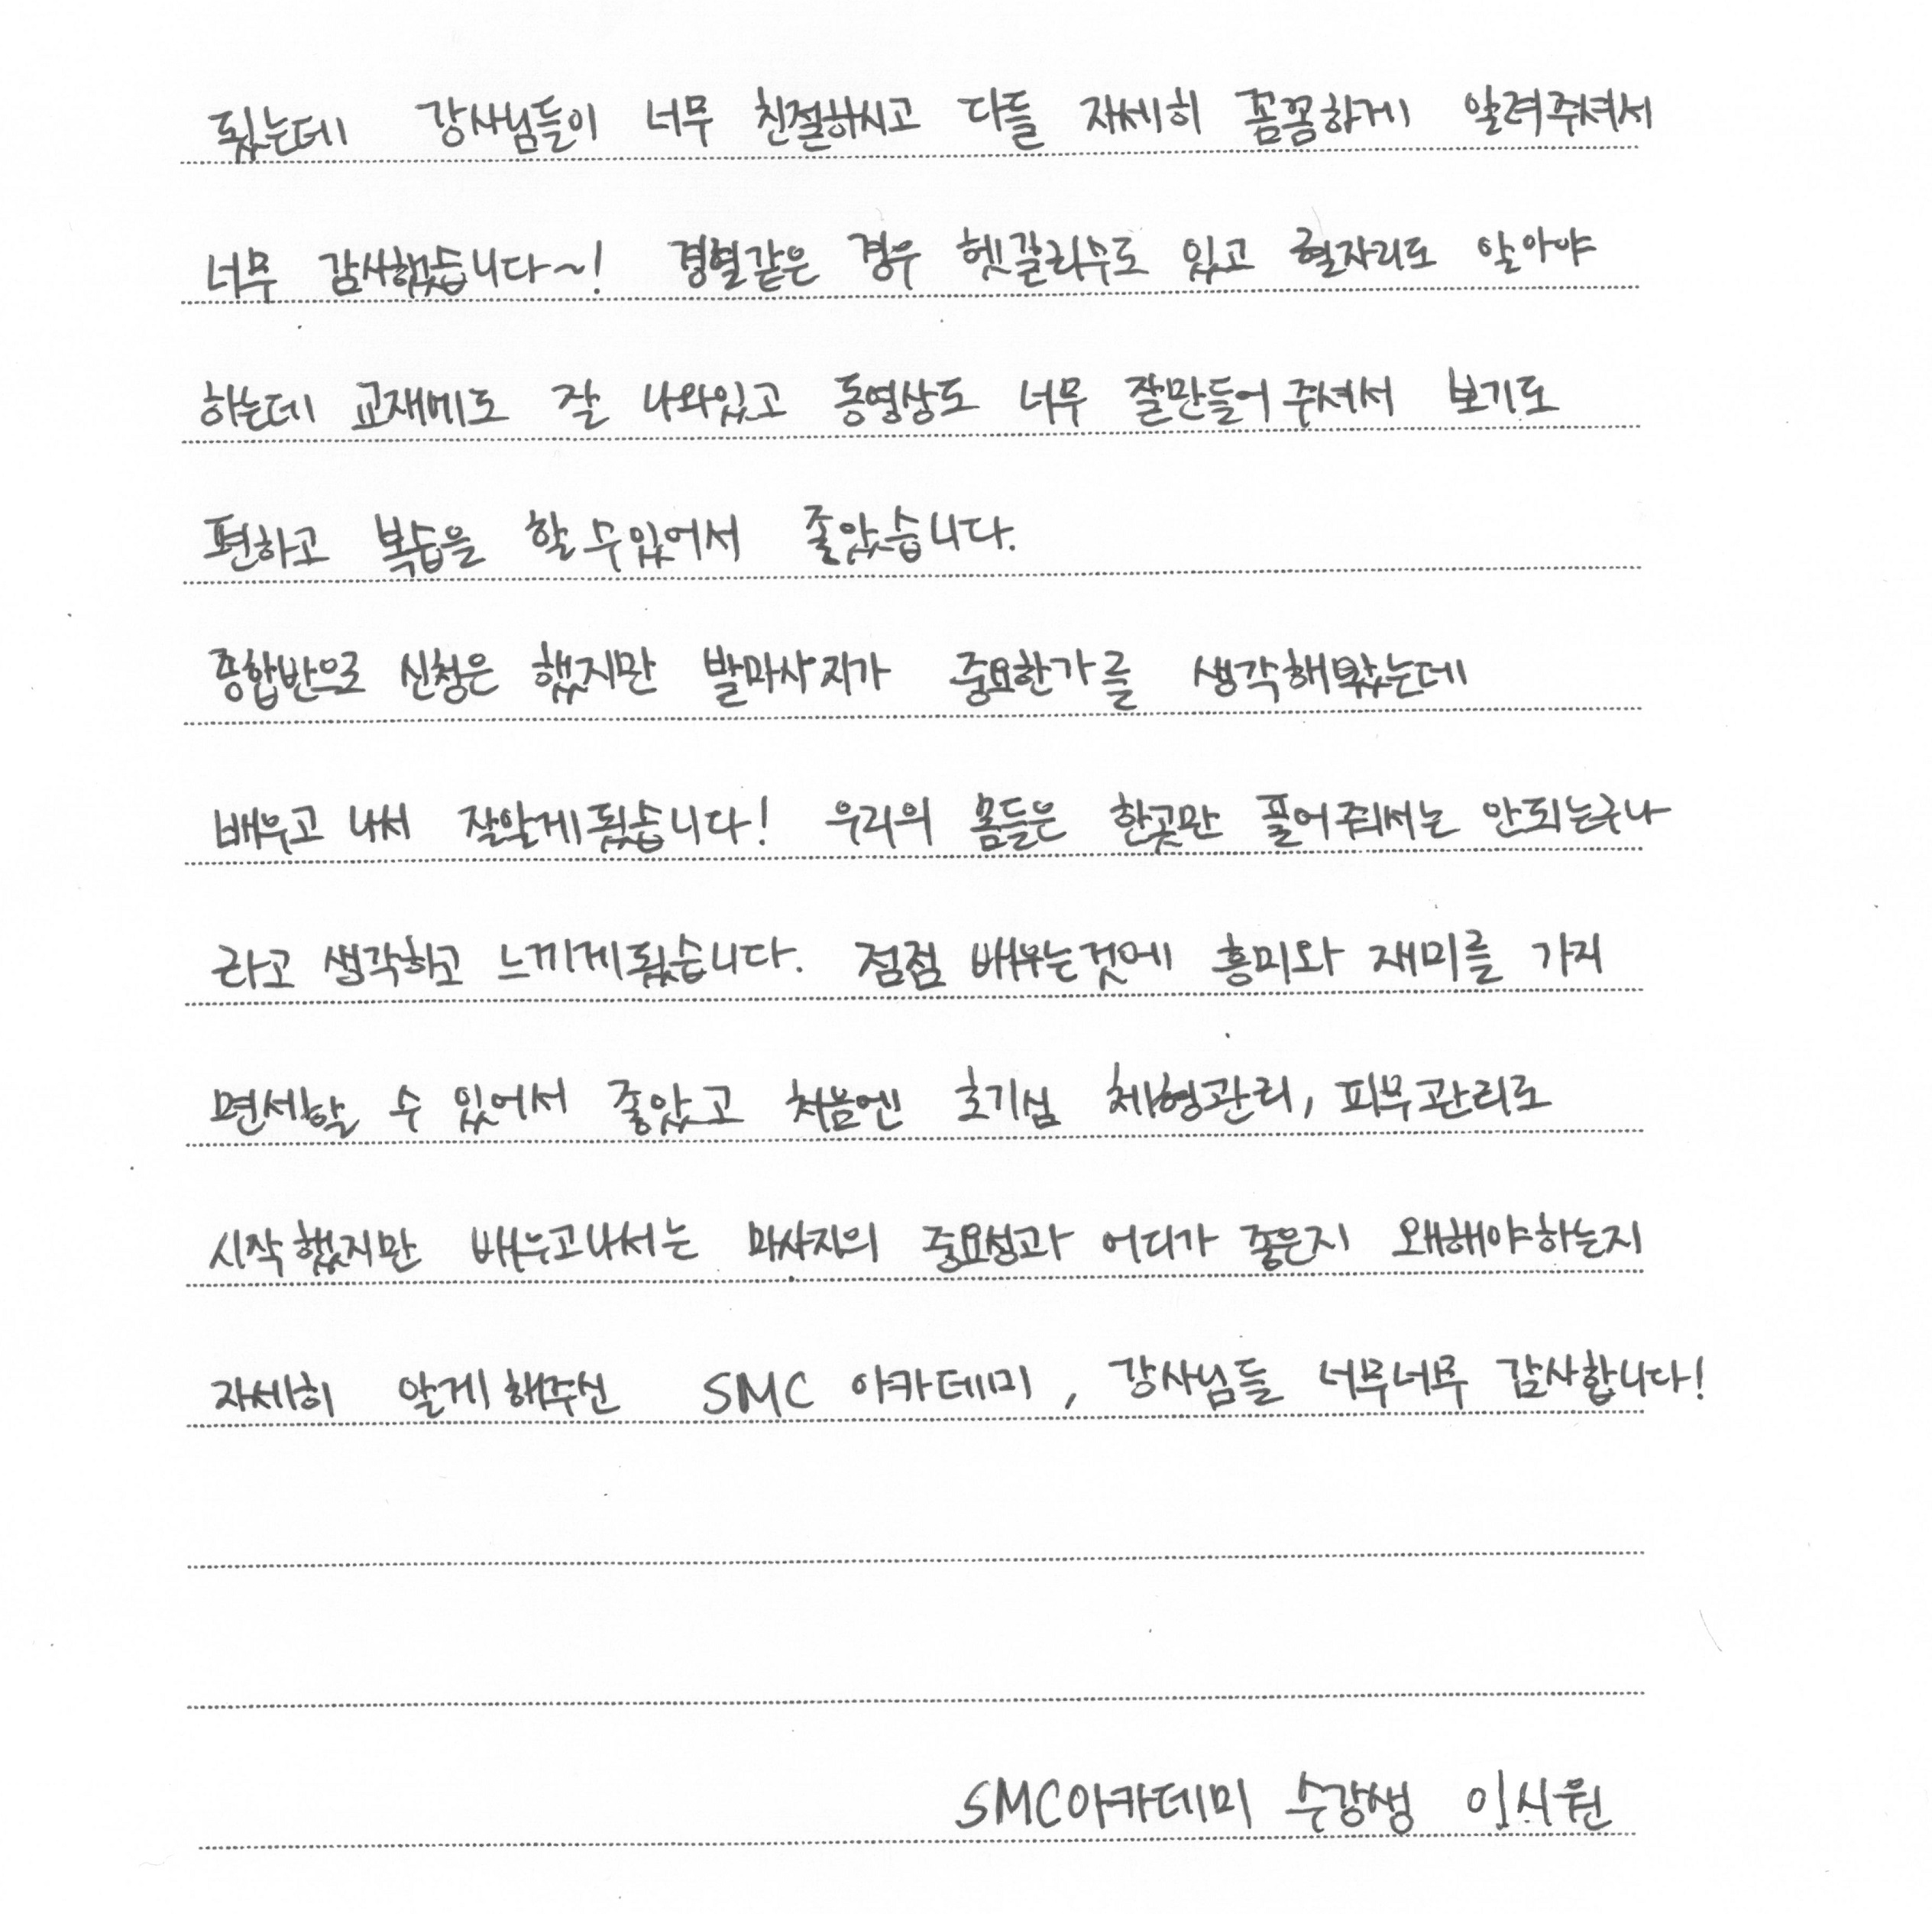 됬는데 강사님들이 너무 친절하시고 다들 자세히 꼼꼼하게 알려주셔서
너무 감사했습니다~! 경혈같은 경우 헷갈리수도 있고 혈자리도 알아야
하는데 교재에도 잘 나와있고 동영상도 너무 잘만들어주셔서 보기도
편하고 복습을 할 수있어서 좋았습니다.
종합반으로 신청은 했지만 발마사지가 중요한가를 생각해봤는데
배우고 나서 잘알게됬습니다! 우리의 몸들은 한곳만 풀어줘서는 안되는구나
라고 생각하고 느끼게됬습니다. 점점 배우는것에 흥미와 재미를 가지
면서할 수 있어서 좋았고 처음엔 호기심 체형관리, 피부관리로
시작했지만 배우고나서는 마사지의 중요성과 어디가 좋은지 왜해야하는지
자세히 알게해주신 SMC 아카데미, 강사님들 너무너무 감사합니다!
SMC아카데미 수강생 이시원